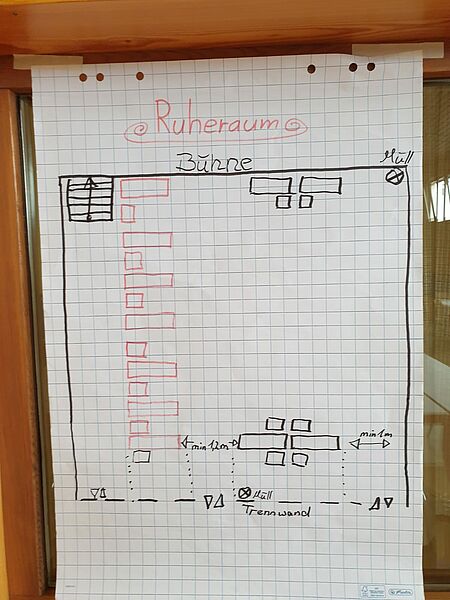 Ruheraum
Bühne
Müll
min 1,2m
min 1m
Müll
Trennwand